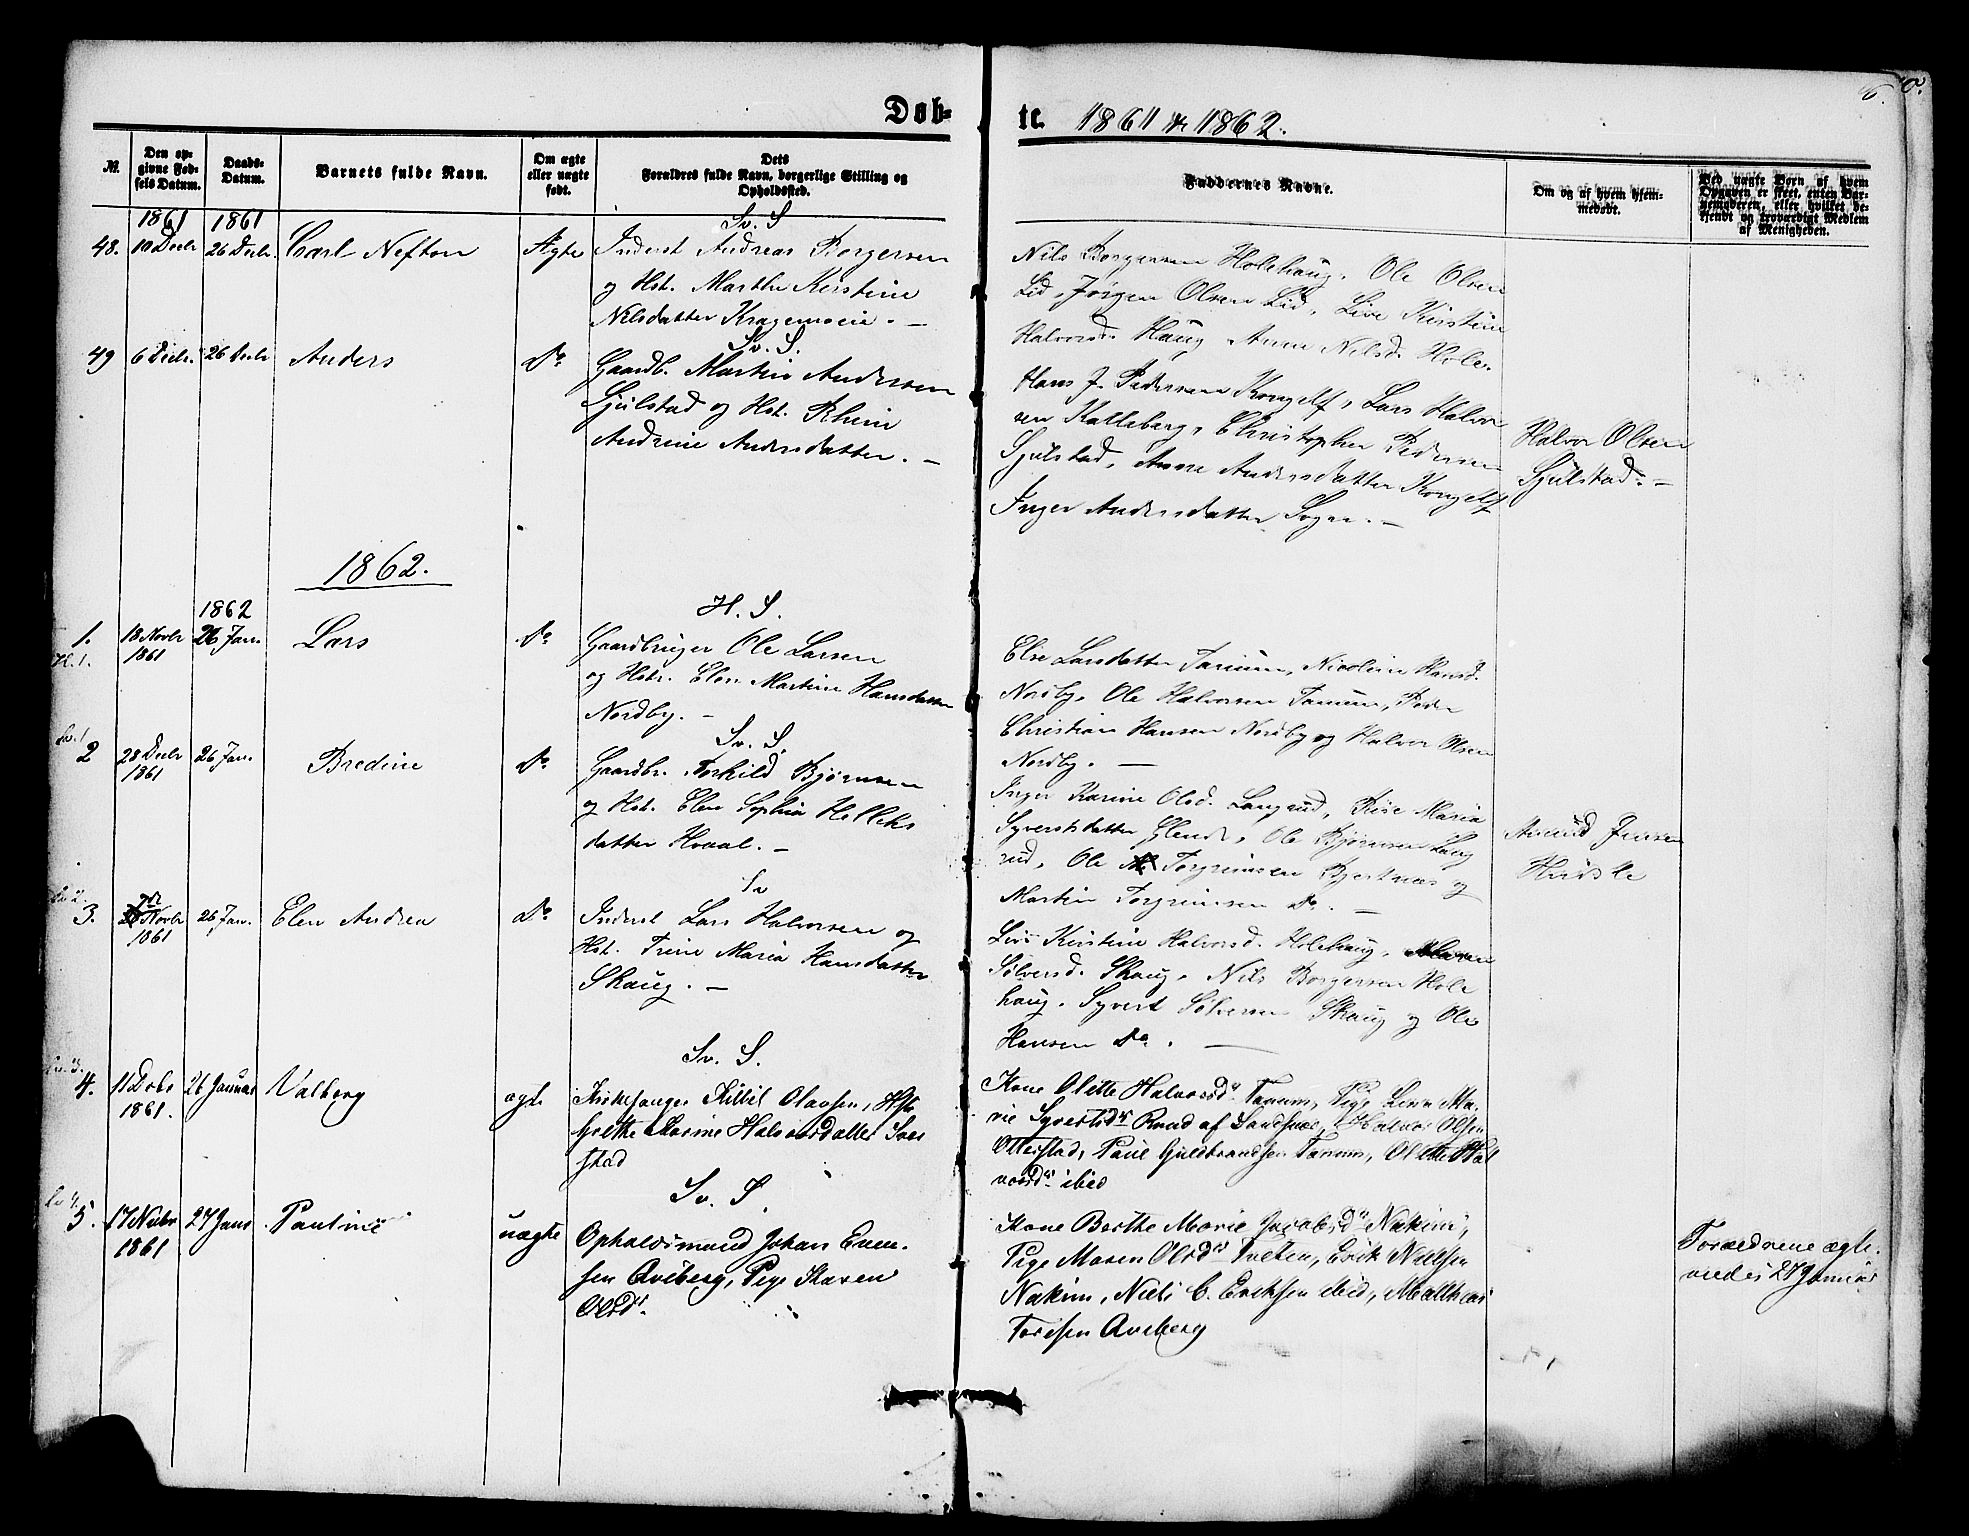 Døb-
te. 1861 & 1862.
6.
№
Den op-
givne Fød-
sels Datum.
Daabs-
Datum.
Barnets fulde Navn.
Om ægte
eller uægte
født.
Dets
Forældres fulde Navn, borgerlige Stilling og
Opholdssted.
Faddernes Navne.
Om og af hvem hjem-
medøbt.
Ved uægte Børn af hvem
Opgaven er skeet, enten Bar-
nemoderen, eller hvilket be-
kjendt og troværdigt Medlem
af Menigheden.
1861
1861
Sv. S
48.
10 Decbr
26 Decbr.
Carl Nefton
Ægte
Inderst Andreas Borgersen
og Hst. Marthe Kirstine
Nilsdatter Kragemoeie. —
Nils Borgersen Holehaug, Ole Olsen
Lid, Jørgen Olsen Lid, Live Kirstine
Halvorsd. Haug, Anne Nilsd. Hole.
Sv. S.
49
6 Decbr.
26 Decbr
Anders
Do
Gaardb. Martin Andersen
Gjulstad og Hst. Rhine
Andrine Andersdatter. —
Hans J. Pedersen Kongelf, Lars Halvor
sen Kalleberg, Christopher Pedersen
Gjulstad, Anne Andersdatter Kongelf
Inger Andersdatter Sogn. —
Halvor Olsen
Gjulstad. —
1862.
1862
H. S.
1.
H. 1.
18 Novbr
1861
26 Jan.
Lars
Do
Gaardbruger Ole Larsen
og Hstr. Elen Martine Hansdatter
Nordby. —
Else Larsdatter Tanum, Nicoline Hansd.
Nordby, Ole Halvorsen Tanum, Peder
Christian Hansen Nordby og Halvor Olsen
Nordby. —
Sv. 1
Sv. S.
2
28 Decbr
1861
26 Jan.
Bredine
Do
Gaardbr. Torkild Bjørnsen
og Hst. Elen Sophia Helleks
datter Hvaal. —
Inger Karine Olsd. Langrud, Rise Maria
Syvertsdatter Glende, Ole Bjørnsen Lang
rud, Ole Torgrimsen Bjertnæs og
Martin Torgrimsen Do. —
Amund Jensen
Sv 2.
Sv
3.
Novbr
1861
26 Jan.
Elen Andrea
Do
Inderst Lars Halvorsen og
Hst. Trine Maria Hansdatter
Skaug. —
Live Kirstine Halvorsd. Holehaug, Maren
Sølversd. Skaug, Nils Borgersen Hole
haug, Syvert Sølversen Skaug og Ole
Hansen Do. —
Sv. 3.
Sv. S.
4.
11 Debr
1861.
26 Januar
Valborg
ægte
Kirkesanger Kittil Olavsen, Hst
Grethe Karine Halvorsdatter Sver
stad
Kone Olette Halvorsdr Tanum, Pige Lina Ma-
rie Syvertsdr Ruud af Sandsvær, Halvor Olsen
Otterstad, Paul Guldbrandsen Tanum, Olette Hal
vorsdr ibid
Sv 4.
Sv. S.
5.
17 Nvbr
1861
27 Janr
Pauline
uægte
Opholdsmand Johan Even-
sen Aviberg, Pige Karen
Olsdr.
Kone Berthe Marie Jacobsdr Nakim,
Pige Maren Olsdr Tveten, Erik Nielsen
Nakim, Niels C. Eriksen ibid, Mathias
Toresen Aviberg
Forældrene ægte-
viedes 27 Januar